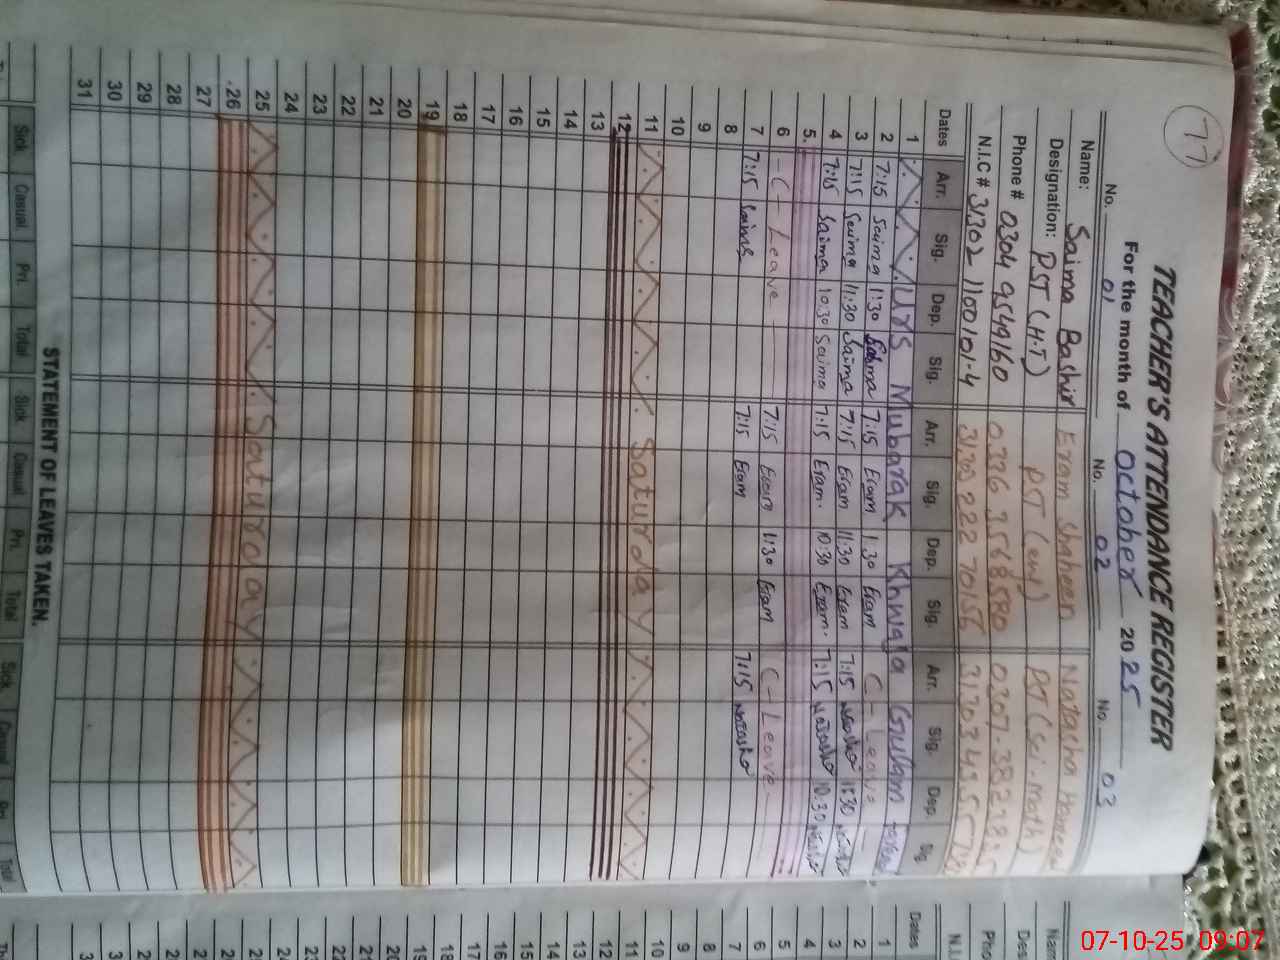 77
TEACHER'S ATTENDANCE REGISTER
For the month of October 2025
No. 01 No. 02 No. 03
Name: Saima Bashir Eram Shaheen Natasha
Designation: PST (H.T) PST PST (Sci. math)
Phone # 0304 9549160 0336 3568580
N.I.C # 31302 1100101-4
Dates Arr. Sig. Dep. Sig. Arr. Sig. Dep. Sig. Arr. Sig. Dep. Sig.
1 Urs Mubarak Khwaja Gulam
2 7:15 Saima 1:30 Saima 7:15 Eram 1:30 Eram C-Leave
3 7:15 Saima 11:30 Saima 7:15 Eram 11:30 Eram 7:15 Natasha 11:30 Natasha
4 7:15 Saima 10:30 Saima 7:15 Eram. 10:30 Eram. 7:15 Natasha 10:30 Natasha
5.
6 - C - Leave 7:15 Eram 1:30 Eram C-Leave
7 7:15 Saima 7:15 Eram 7:15 Natasha
8
9
10
11 Saturday
12
13
14
15
16
17
18
19
20
21
22
23
24
25 Saturday
26
27
28
29
30
31
STATEMENT OF LEAVES TAKEN.
Sick Casual Pri. Total Sick Casual Pri. Total Sick Casual Pri Total
Name
Dates
1
2
3
4
5
6
7
8
9
10
11
12
13
14
15
16
17
18
19
07-10-25 09:07